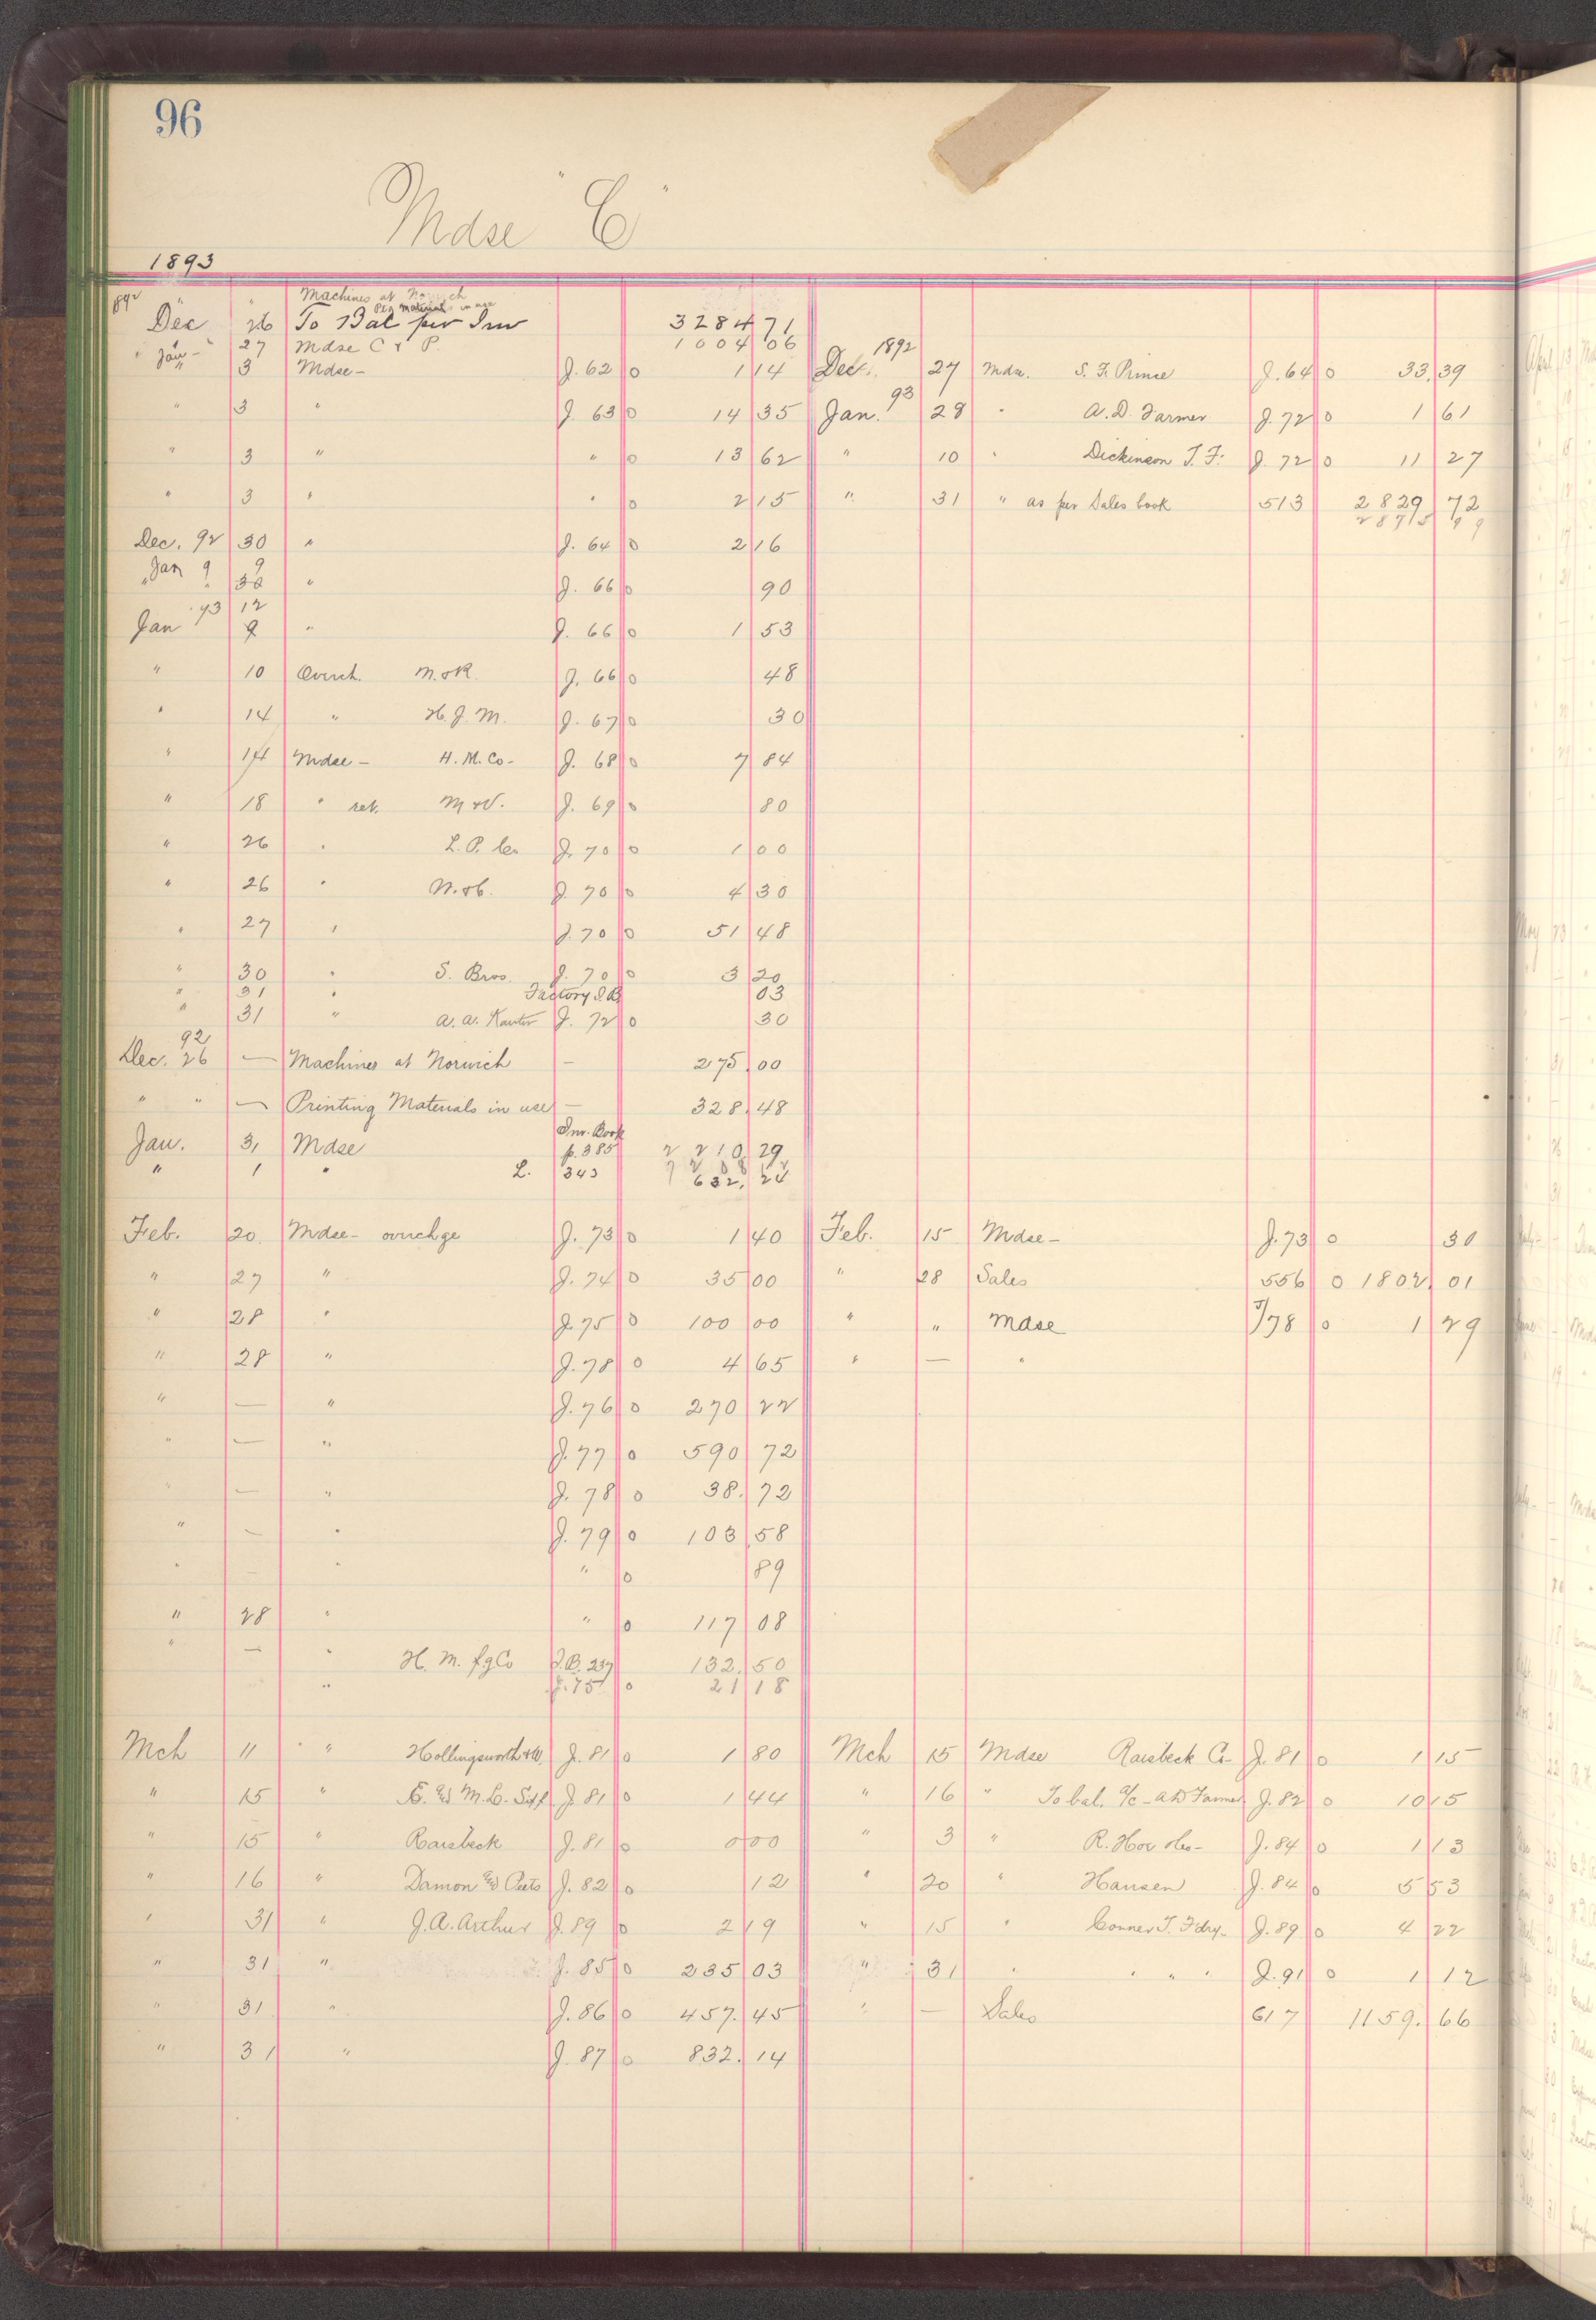 96
Mdse "C"
1893
Machines at Norwich
Ptg Materials in use
892 Dec 26 To Bal per Inv 3284 71
" 27 Mdse C & P. 1004 06
Jan - 3 Mdse - J. 62 0 1 14
" 3 " J 63 0 14 35
" 3 " " 0 13 62
" 3 " " 0 2 15
Dec. 92 30 " J. 64 0 2 16
Jan 9 9
" 30 " J. 66 0 90
'93 12
Jan 9 " J. 66 0 1 53
" 10 Overch. M. & R. J. 66 0 48
" 14 " H. J. M. J. 67 0 30
" 14 Mdse - H. M. Co - J. 68 0 7 84
" 18 " ret. M & V. J. 69 0 80
" 26 " L. P. Co J. 70 0 1 00
" 26 " J. 70 0 4 30
" 27 " J. 70 0 51 48
" 30 " S. Bros. J. 70 0 3 20
" 31 " Factory I.B. 03
" 31 " A. A. Kanter J. 72 0 30
92
Dec. 26 — Machines at Norwich — 275 00
" " — Printing Materials in use — 328 48
Inv. Book
Jan. 31 Mdse p. 385 2 210 29
" 1 " L. 343 632 24
Feb. 20 Mdse - overchge J. 73 0 1 40
" 27 " J. 74 0 35 00
" 28 " J. 75 0 100 00
" 28 " J. 78 0 4 65
" — " J. 76 0 270 22
" — " J. 77 0 590 72
" — " J. 78 0 38. 72
" — " J. 79 0 103 58
" — " " 0 89
" 28 " " 0 117 08
" — " H. M. fg Co I.B. 237 132. 50
" J. 75 0 21 18
Mch 11 " " Hollingsworth & W. J. 81 0 1 80
" 15 " J. 81 0 1 44
" 15 " Raisbeck J. 81 0 0 00
" 16 " Damon and Peets J. 82 0 12
" 31 " J. A. Arthur J. 89 0 2 19
" 31 " J. 85 0 235 03
" 31 " J. 86 0 457. 45
" 31 " J. 87 0 832. 14
1892
Dec. 27 Mdse. S. F. Prince J. 64 0 33. 39
93
Jan. 28 " A. D. Farmer J. 72 0 1 61
" 10 " Dickinson T. F. J. 72 0 11 27
" 31 " as per Sales book 513 2829 72
2875 99
Feb. 15 Mdse - J. 73 0 30
" 28 Sales 556 0 1802 01
" " Mdse J/78 0 1 29
" — "
Mch 15 Mdse Raisbeck Co - J. 81 0 1 15
" 16 " To bal. a/c - A D Farmer J. 82 0 10 15
" 3 " R. Hoe J. 84 0 1 13
" 20 " Hansen J. 84 0 5 53
" 15 " Conner T. Fdry - J. 89 0 4 22
" 31 " " " " J. 91 0 1 12
" — Sales 617 1159. 66